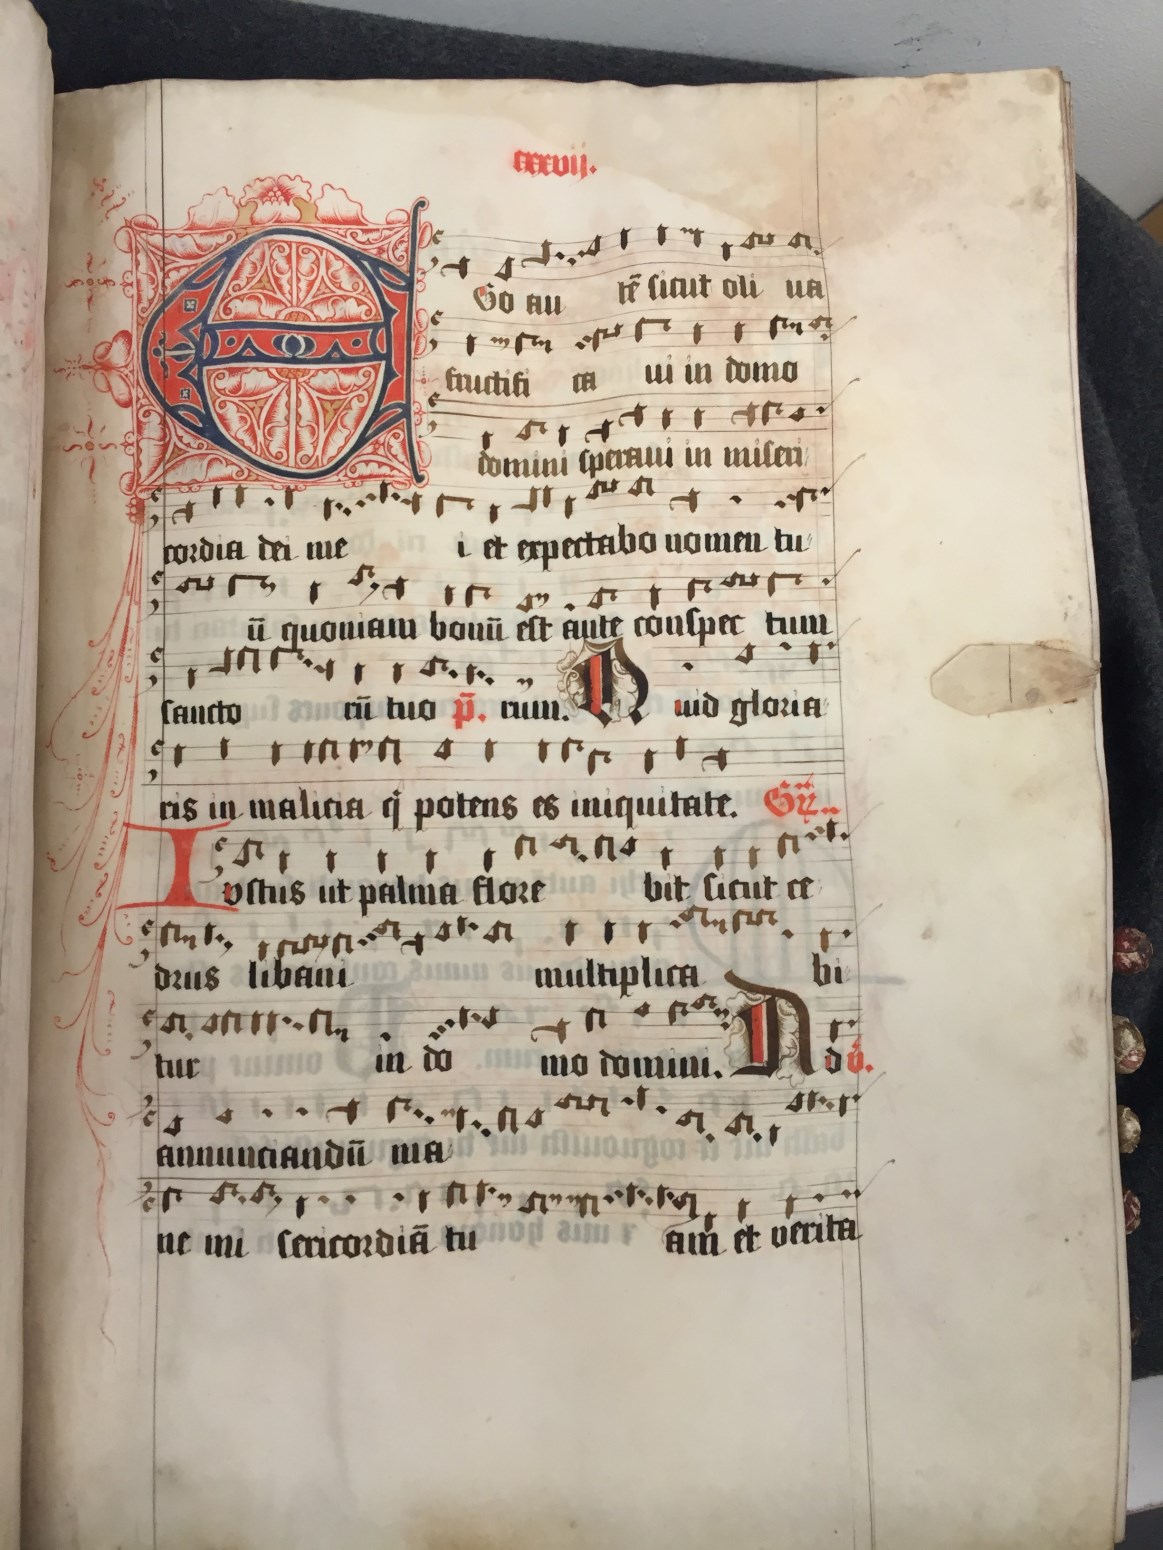 cxxvij.
EGo au tē sicut oli ua
fructifi ca ui in domo
domini speraui in miseri
cordia dei me i et expectabo nomen tu
ū quoniam bonū est ante conspec tum
sancto rū tuo p̄. rum. Quid gloria
ris in malicia q̄ potens es iniquitate.
Iustus ut palma flore bit sicut ce
drus libani multiplica bi
tur in do mo domini. Ad
annunciandū ma
ne mi sericordiā tu am et verita